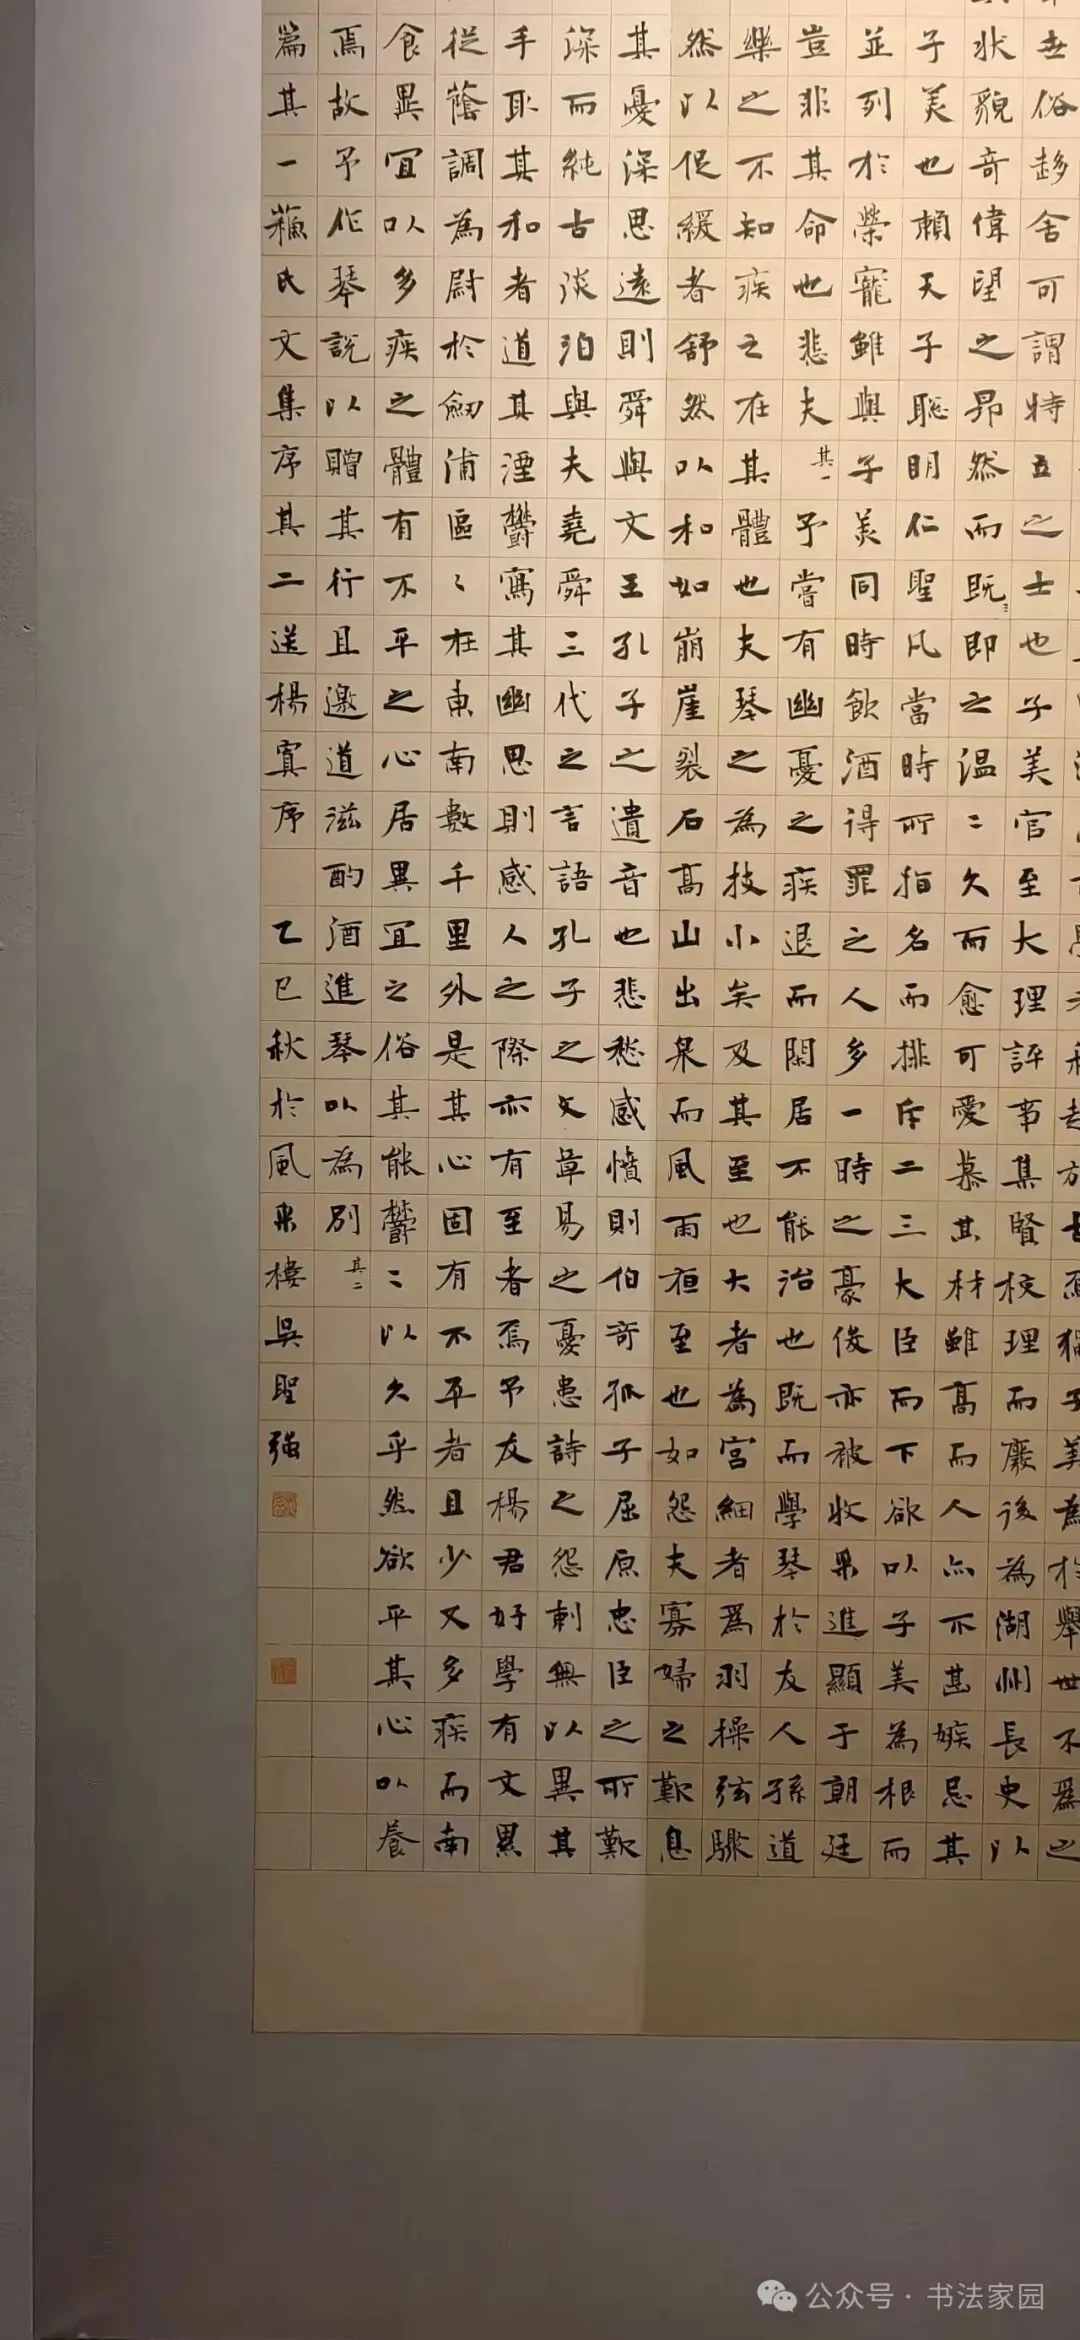 焉獨子美為於舉世不為之
世俗趍舍可謂特立之士也子美官至大理評事集賢校理而廢後為湖州長史以
狀貌奇偉望之昂然而既即之温〻久而愈可愛慕其材雖高而人亦不甚嫉忌其
子美也賴天子聰明仁聖凡當時所指名而排斥二三大臣而下欲以子美為根而
並列於榮寵雖與子美同時飲酒得罪之人多一時之豪俊亦被收果進顯于朝廷
豈非其命也悲夫 其一 予嘗有幽憂之疾退而閑居不能治也既而學琴於友人孫道
樂之不知疾之在其體也夫琴之為技小矣及其至也大者為宮細者為羽操弦驟
然以促緩者舒然以和如崩崖裂石高山出泉而風雨夜至也如怨夫寡婦之歎息
其憂深思遠則舜與文王孔子之遺音也悲愁感憤則伯奇孤子屈原忠臣之所歎
深而純古淡泊與夫堯舜三代之言語孔子之文章易之憂患詩之怨刺無以異其
手取其和者道其湮鬱寫其幽思則感人之際亦有至者焉予友楊君好學有文累
從蔭調為尉於劒浦區〻在東南數千里外是其心固有不平者且少又多疾而南
食異宜以多疾之體有不平之心居異宜之俗其能鬱〻以久乎然欲平其心以養
焉故予作琴說以贈其行且邀道滋酌酒進琴以為別 其二
篇其一蘇氏文集序其二送楊寘序 乙巳秋於風来樓吳聖強
公众号·书法家园